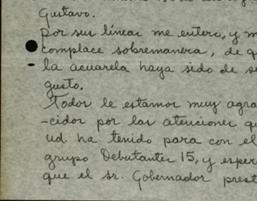 Gustavo.
Por sus líneas me entero, y m
complace sobremanera, de q
la acuarela haya sido de s
gusto.
Todos le estamos muy agra
-cidos por las atenciones q
ud. ha tenido para con el
grupo Debutantes 15, y esper
que el sr. Gobernador prest